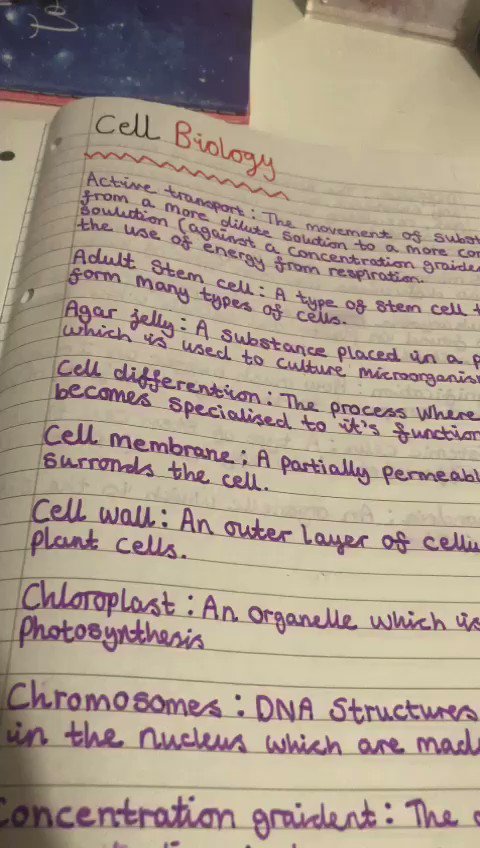 Cell Biology
Active transport: The movement of subst
from a more dilute solution to a more con
soulution (against a concentration graiden
the use of energy from respiration.
Adult stem cell: A type of stem cell t
form many types of cells.
Agar jelly: A substance placed in a p
which is used to culture microorganis
Cell differention: The process where
becomes specialised to it's function
Cell membrane; A partially permeabl
surronds the cell.
Cell wall: An outer layer of cellu
plant cells.
Chloroplast: An organelle which is
Photosynthesis
Chromosomes: DNA structures
in the nucleus which are mad
Concentration graident: The